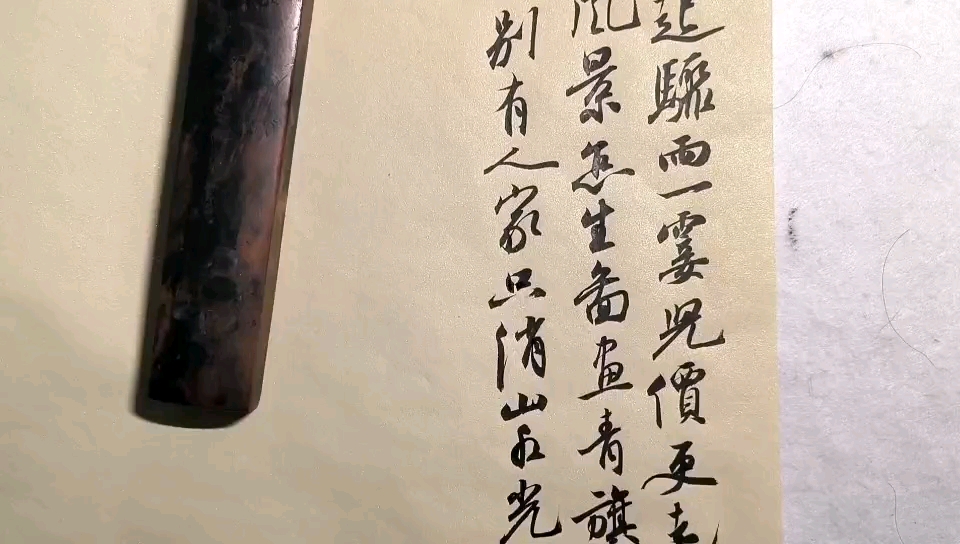 起驟雨一霎兒價更遠
風景怎生圖畫青旗
别有人家只消山水光